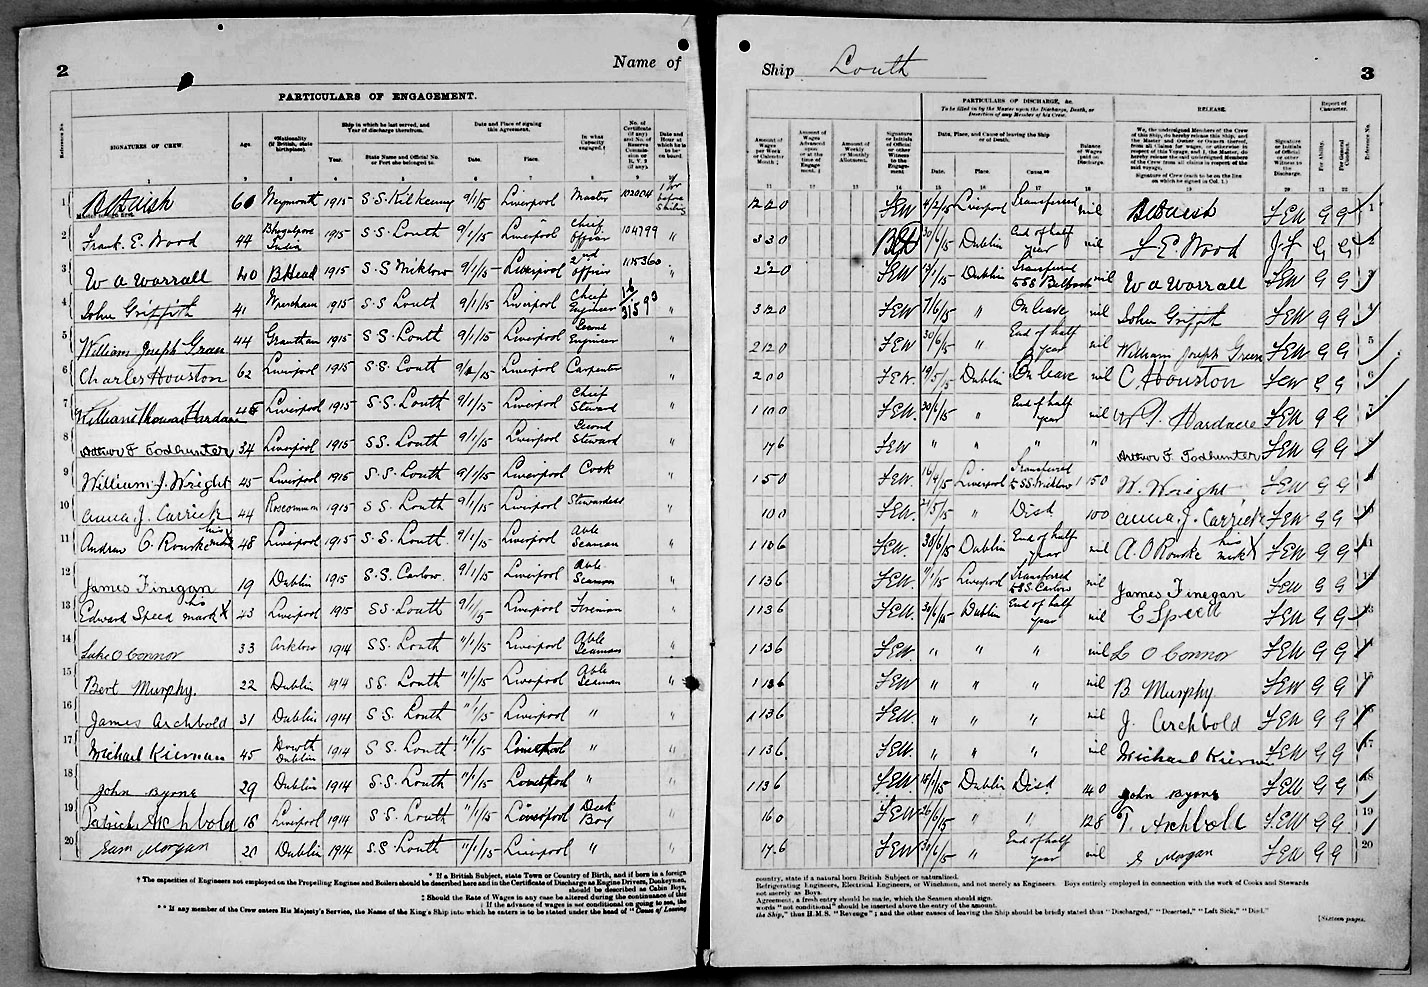 2
Name of
PARTICULARS OF ENGAGEMENT.
Reference No.
SIGNATURES OF CREW.
Age.
*Nationality (if British, state birthplace).
Ship in which he last served, and Year of discharge therefrom.
Year.
State Name and Official No. or Port she belonged to.
Date and Place of signing this Agreement.
Date.
Place.
In what Capacity engaged.†
No. of Certificate (if any) and No. of Reserve Commission or R.V.2 (if any).
Date and Hour at which he is to be on board.
1 2 3 4 5 6 7 8 9 10
1 60 Weymouth 1915 S.S. Kilkenny 9/1/15 Liverpool Master 102004 1 hr before Sailing
Master to sign first.
2 Frank. E. Wood 44 Bhagalpore India 1915 S.S. Louth 9/1/15 Liverpool Chief Officer 104799 "
3 W A Worrall 40 B.Head 1915 S.S Wicklow 9/1/15 Liverpool 2nd Officer "
4 John Griffith 41 Wrexham 1915 S.S Louth 9/1/15 Liverpool Chief Engineer "
5 William Joseph Green 44 Grantham 1915 S.S. Louth 9/1/15 Liverpool Second Engineer "
6 Charles Houston 62 Liverpool 1915 S.S. Louth 9/1/15 Liverpool Carpenter "
7 William Thomas Hardacre Liverpool 1915 S.S. Louth 9/1/15 Liverpool Chief Steward "
8 Arthur F Todhunter 34 Liverpool 1915 S.S. Louth 9/1/15 Liverpool Second Steward "
9 William J. Wright 45 Liverpool 1915 S.S. Louth 9/1/15 Liverpool Cook "
10 Annie J. Carrick 44 Roscommon 1915 S.S. Louth 9/1/15 Liverpool Stewardess "
11 Andrew O. Rourke his mark 48 Liverpool 1915 S.S. Louth 9/1/15 Liverpool Able Seaman "
12 James Finegan 19 Dublin 1915 S.S. Carlow 9/1/15 Liverpool Able Seaman "
13 Edward Speed his mark X 43 Liverpool 1915 S.S. Louth 9/1/15 Liverpool Fireman "
14 Luke O Connor 33 Arklow 1914 S.S. Louth 11/1/15 Liverpool Able Seaman "
15 Bert Murphy. 22 Dublin 1914 S.S. Louth 11/1/15 Liverpool Able Seaman "
16 James Archbold 31 Dublin 1914 S.S. Louth 11/1/15 Liverpool " "
17 Michael Kiernan 45 Howth Dublin 1914 S.S. Louth 11/1/15 Liverpool " "
18 John Byrne 29 Dublin 1914 S.S. Louth 11/1/15 Liverpool " "
19 Patrick Archbold 18 Liverpool 1914 S.S. Louth 11/1/15 Liverpool Deck Boy "
20 Sam Morgan 20 Dublin 1914 S.S. Louth 11/1/15 Liverpool " "
* If a British Subject, state Town or Country of Birth, and if born in a foreign
† The capacities of Engineers not employed on the Propelling Engines and Boilers should be described here and in the Certificate of Discharge as Engine Drivers, Donkeymen,
should be described as Cabin Boys,
‡ Should the Rate of Wages in any case be altered during the continuance of this
; If the advance of wages is not conditional on going to sea, the
** If any member of the Crew enters His Majesty's Service, the Name of the King's Ship into which he enters is to be stated under the head of "Cause of Leaving
Ship Louth
3
Amount of Wages per Week or Calendar Month ‡
Amount of Wages Advanced upon or at the time of Engagement. ‡
Amount of Weekly or Monthly Allotment.
Signature or Initials of Official or other Witness to the Engagement
PARTICULARS OF DISCHARGE, &c.
To be filled in by the Master upon the Discharge, Death, or Desertion of any Member of his Crew.
Date, Place, and Cause of leaving the Ship or of Death.
Date.
Place.
Cause**
Balance of Wages paid on Discharge.
RELEASE.
We, the undersigned Members of the Crew of this Ship, do hereby release this Ship, and the Master and Owner or Owners thereof, from all Claims for wages, or otherwise in respect of this Voyage, and I, the Master, do hereby release the said undersigned Members of the Crew from all claims in respect of the said voyage.
Signature of Crew (each to be on the line on which he signed in Col. 1.)
Signature or Initials of Official or other Witness to the Discharge.
Report of Character.
For Ability.
For General Conduct.
Reference No.
11 12 13 14 15 16 17 18 19 20 21 22
FEW 4/2/15 Liverpool Transferred nil FEW G G 1
330 30/6/15 Dublin End of half year nil F E Wood G G 2
FEW Dublin Transferred to SS nil W A Worrall FEW G G 3
FEW 7/6/15 " On leave nil John Griffith FEW G G 4
FEW 30/6/15 " End of half year nil William Joseph Green FEW G G 5
200 FEW. 19/5/15 Dublin On leave nil C. Houston FEW G G 6
FEW. 30/6/15 " End of half year nil W T. Hardacre FEW G G 7
176 FEW " " " " Arthur F. Todhunter FEW G G 8
150 FEW. 16/4/15 Liverpool Transferred to SS Wicklow 150 W. Wright FEW G G 9
100 FEW. 21/5/15 " Disd 100 Annie J. Carrick FEW G G 10
FEW. 30/6/15 Dublin End of half year nil A. O Rourke his mark X FEW G G 11
1136 FEW. Liverpool Transferred to SS. Carlow nil James Finegan FEW G G 12
1136 FEW. 30/6/15 Dublin End of half year nil E Speed FEW G G 13
1136 FEW. " " " nil L O Connor FEW G G 14
1136 FEW. " " " nil B Murphy FEW G G 15
1136 FEW. " " " nil J. Archbold FEW G G 16
1136 FEW. " " " nil Michael Kiernan FEW G G 17
1136 FEW. Dublin Disd 140 John Byrne FEW G G 18
160 FEW " " 128 P. Archbold FEW G G 19
176 FEW 30/6/15 " End of half year nil S Morgan FEW G G 20
country, state if a natural born British Subject or naturalized.
Refrigerating Engineers, Electrical Engineers, or Winchmen, and not merely as Engineers. Boys entirely employed in connection with the work of Cooks and Stewards
not merely as Boys.
Agreement, a fresh entry should be made, which the Seamen should sign.
words "not conditional" should be inserted above the entry of the amount.
the Ship," thus H.M.S. "Revenge"; and the other causes of leaving the Ship should be briefly stated thus "Discharged," "Deserted," "Left Sick," "Died."
[Sixteen pages.